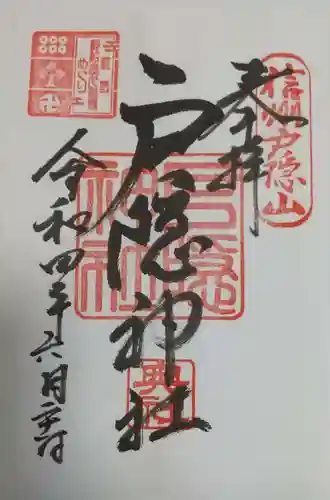 信州戸隠山
奉拝
戸隠神社
戸隠神社
奥社
令和四年六月二六日